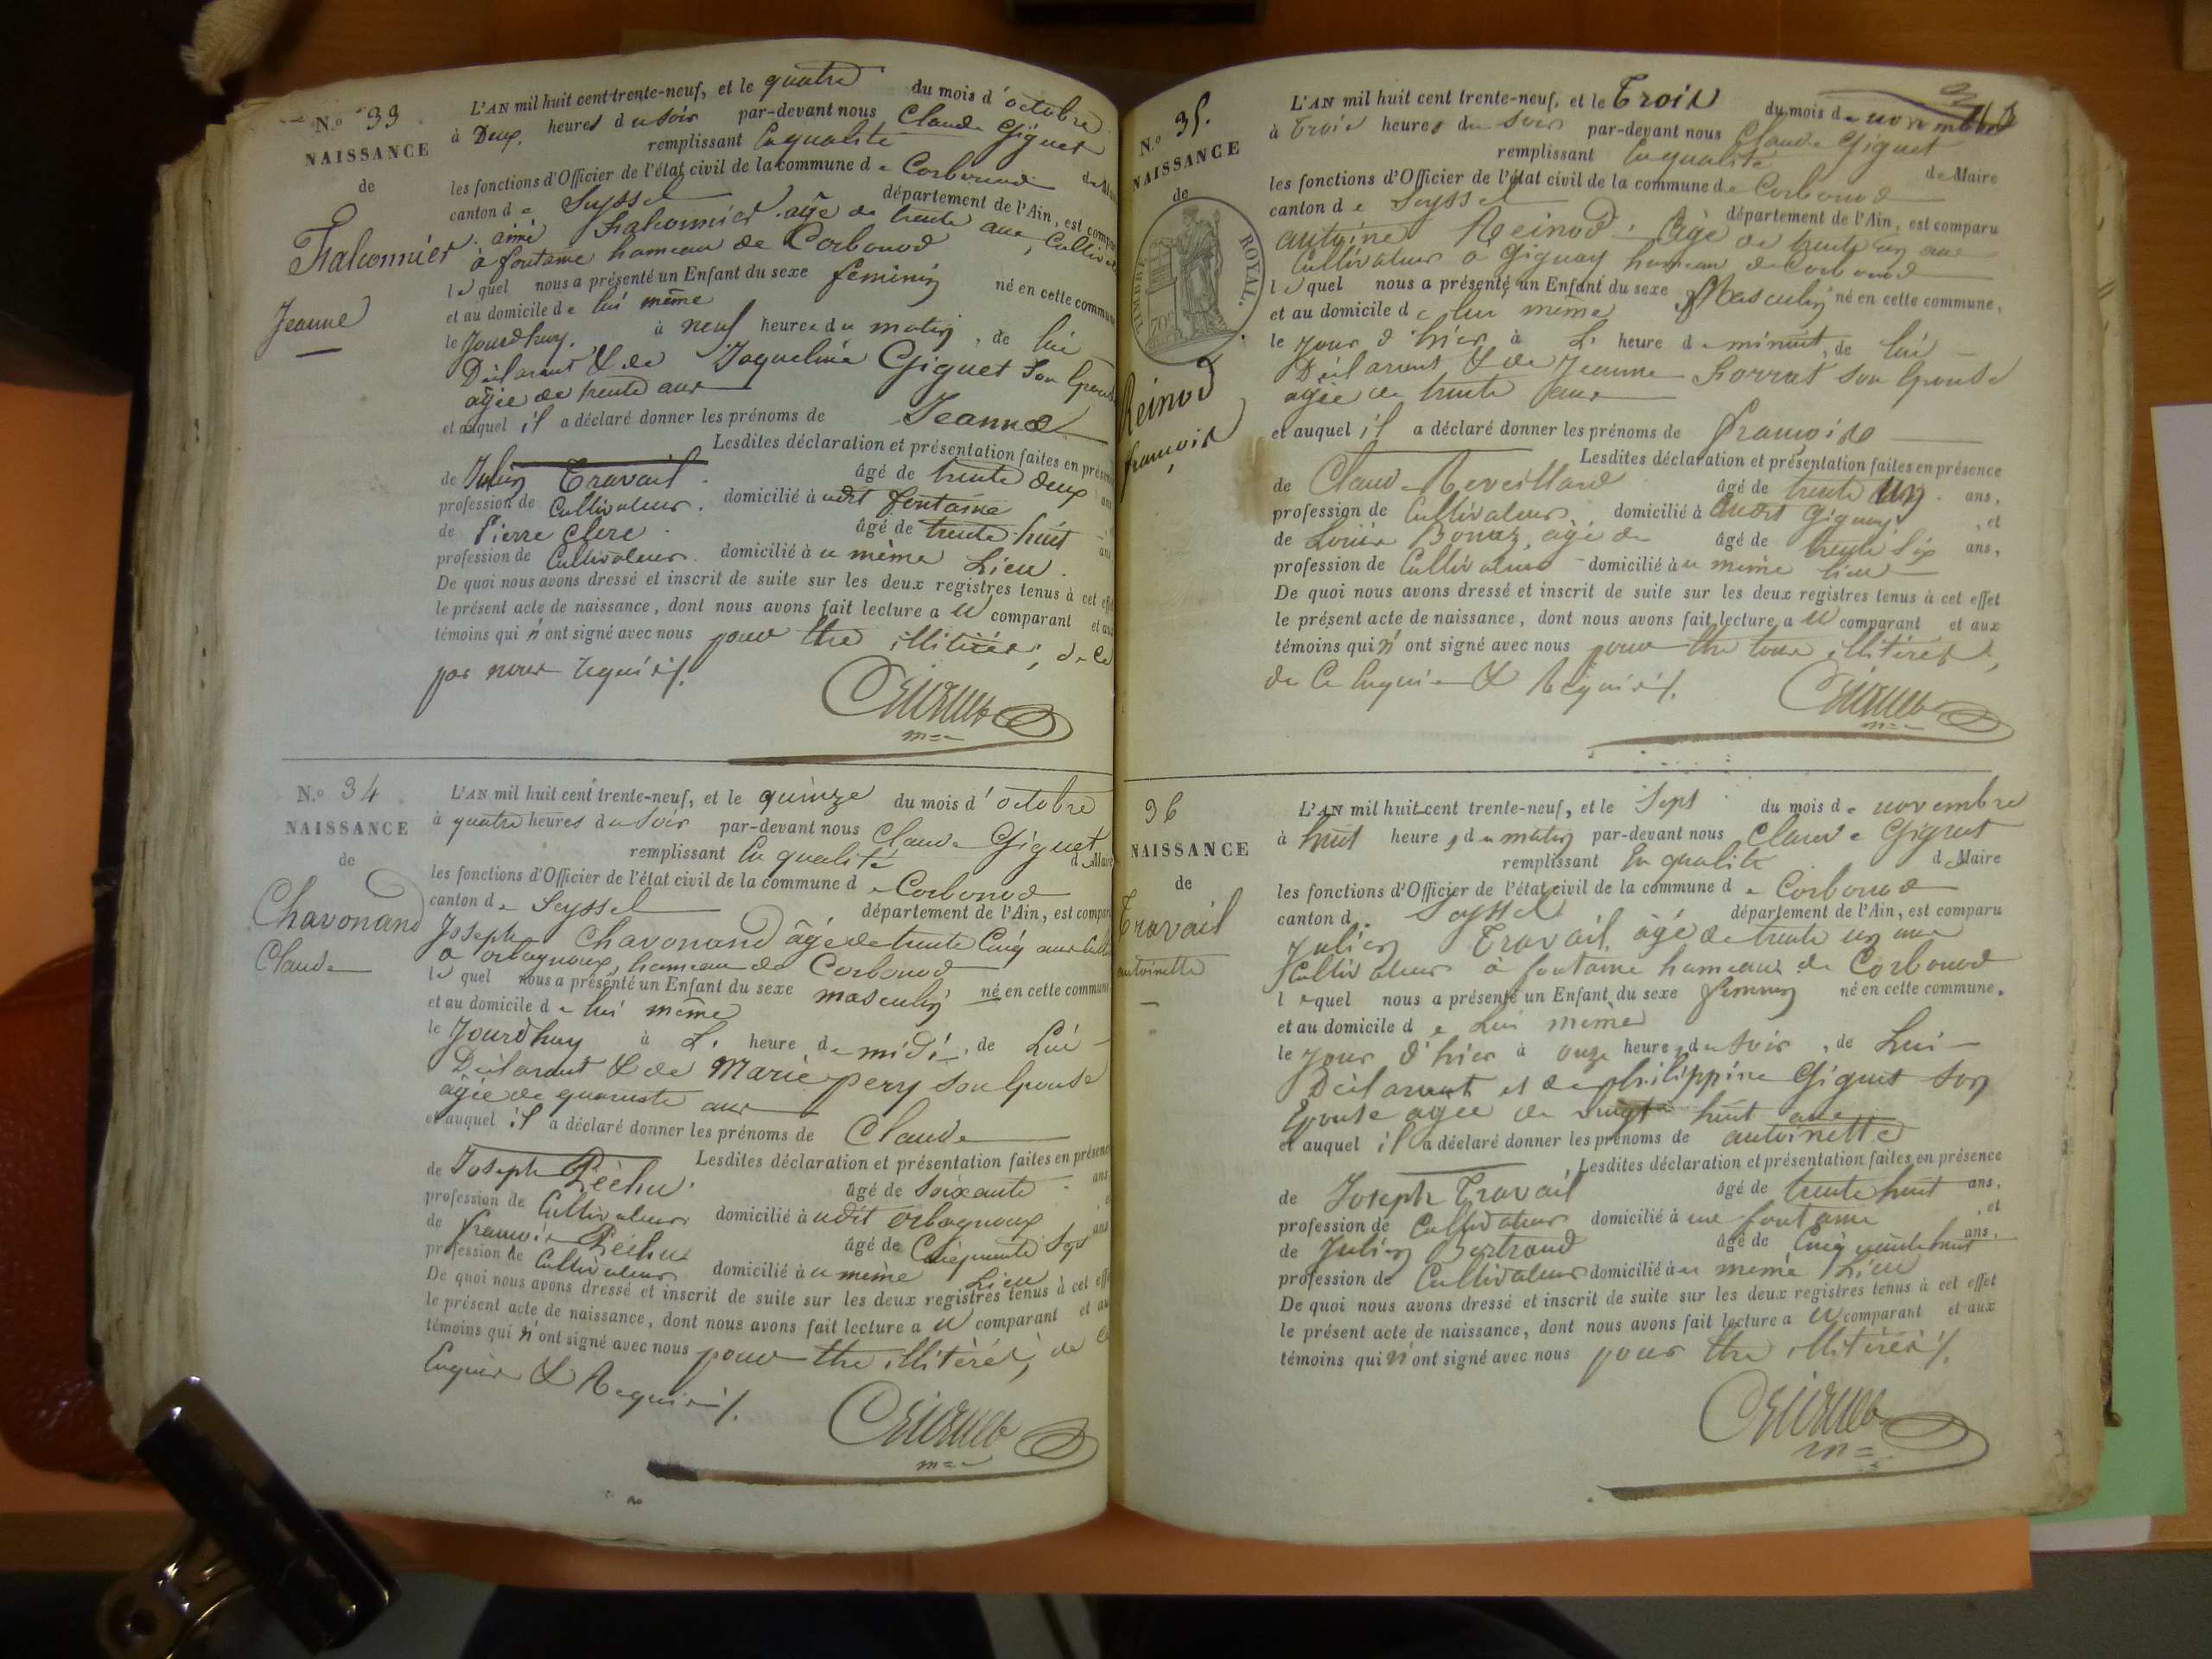 N.º 33
NAISSANCE
de
Falconnier
Jeanne
L'AN mil huit cent trente-neuf, et le quatre du mois d'octobre
à Deux heures du soir par-devant nous Claude Giguet
remplissant En qualité de Maire
les fonctions d'Officier de l'état civil de la commune de Corbonod
canton de Seyssel département de l'Ain, est comparu
aimé Falconnier agé de trente ans, Cultivateur
à fontaine hameau de Corbonod
lequel nous a présenté un Enfant du sexe feminin né en cette commune
et au domicile de lui même
le Jourdhuy à neuf heures du matin, de lui
Déclarant & de Jaqueline Giguet Son Epouse
agée de trente ans
et auquel il a déclaré donner les prénoms de Jeanne
Lesdites déclaration et présentation faites en présence
de Julien Travail âgé de trente deux ans
profession de Cultivateur domicilié à udit fontaine
de Pierre Clerc âgé de trente huit ans
profession de Cultivateur domicilié à u même Lieu
De quoi nous avons dressé et inscrit de suite sur les deux registres tenus à cet effet
le présent acte de naissance, dont nous avons fait lecture a u comparant et aux
témoins qui n'ont signé avec nous pour être illitérés, de ce
par nous requis
Giguet
N.º 34
NAISSANCE
de
Chavonand
Claude
L'AN mil huit cent trente-neuf, et le quinze du mois d'octobre
à quatre heures du soir par-devant nous Claude Giguet
remplissant En qualité d Maire
les fonctions d'Officier de l'état civil de la commune de Corbonod
canton de Seyssel département de l'Ain, est comparu
Joseph Chavonand âgé de trente Cinq ans
à orbagnoux, hameau de Corbonod
lequel nous a présenté un Enfant du sexe masculin né en cette commune
et au domicile de lui même
le Jourdhuy à L' heure de midi, de Lui
Déclarant & de Marie pery son Epouse
âgée de quarante ans
et auquel il a déclaré donner les prénoms de Claude
Lesdites déclaration et présentation faites en présence
de Joseph Béchu âgé de Soixante ans
profession de Cultivateur domicilié à udit orbagnoux
de francois Béchu âgé de Cinquante Sept ans
profession de Cultivateur domicilié à u même Lieu
De quoi nous avons dressé et inscrit de suite sur les deux registres tenus à cet effet
le présent acte de naissance, dont nous avons fait lecture a u comparant et aux
témoins qui n'ont signé avec nous pour être illitérés, de ce
Enquis & Requis
Giguet
N.º 35.
NAISSANCE
de
TIMBRE ROYAL
Reinod
francois
L'AN mil huit cent trente-neuf, et le Trois du mois de novembre
à trois heures du soir par-devant nous Claude Giguet
remplissant En qualité de Maire
les fonctions d'Officier de l'état civil de la commune de Corbonod
canton de Seyssel département de l'Ain, est comparu
antoine Reinod, âgé de trente un ans
Cultivateur à Gignay hameau de Corbonod
lequel nous a présenté un Enfant du sexe Masculin né en cette commune,
et au domicile de lui même
le Jour d'hier à L' heure de minuit, de lui
Déclarant & de Jeanne Sorrat son Epouse
agée de trente ans
et auquel il a déclaré donner les prénoms de francois
Lesdites déclaration et présentation faites en présence
de Claude Reveillard âgé de trente un ans,
profession de Cultivateur domicilié à audit Gignay, et
de Louis Bonaz, âgé de âgé de trente Six ans,
profession de Cultivateur domicilié à u même lieu
De quoi nous avons dressé et inscrit de suite sur les deux registres tenus à cet effet
le présent acte de naissance, dont nous avons fait lecture a u comparant et aux
témoins qui n'ont signé avec nous pour être tous illitérés,
de ce Enquis & Requis
Giguet
36
NAISSANCE
de
Travail
antoinette
L'AN mil huit cent trente-neuf, et le Sept du mois de novembre
à huit heures du matin par-devant nous Claude Giguet
remplissant En qualité d Maire
les fonctions d'Officier de l'état civil de la commune de Corbonod
canton d. Seyssel département de l'Ain, est comparu
Julien Travail, âgé de trente un ans
Cultivateur à fontaine hameau de Corbonod
lequel nous a présenté un Enfant du sexe feminin né en cette commune,
et au domicile de Lui même
le Jour d'hier à onze heures du soir, de Lui
Déclarant et de philippine Giguet son
Epouse agée de vingt huit ans
et auquel il a déclaré donner les prénoms de antoinette
Lesdites déclaration et présentation faites en présence
de Joseph Travail âgé de trente huit ans,
profession de Cultivateur domicilié à fontaine, et
de Julien Bertrand âgé de Cinquante huit ans,
profession de Cultivateur domicilié à u même Lieu
De quoi nous avons dressé et inscrit de suite sur les deux registres tenus à cet effet
le présent acte de naissance, dont nous avons fait lecture a u comparant et aux
témoins qui n'ont signé avec nous pour être illitérés
Giguet